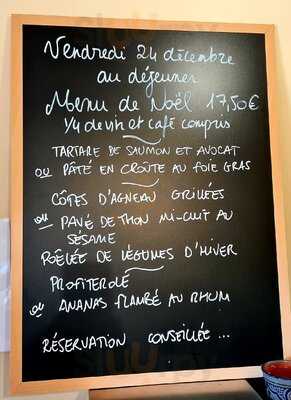 Vendredi 24 décembre
au déjeuner
Menu de Noël 17,50€
1/4 de vin et café compris
TARTARE DE SAUMON ET AVOCAT
ou PÂTÉ EN CROÛTE AU FOIE GRAS
CÔTES D'AGNEAU GRILLÉES
ou PAVÉ DE THON MI-CUIT AU
SÉSAME
POÊLÉE DE LÉGUMES D'HIVER
PROFITEROLE
ou ANANAS FLAMBÉ AU RHUM
RÉSERVATION CONSEILLÉE ...